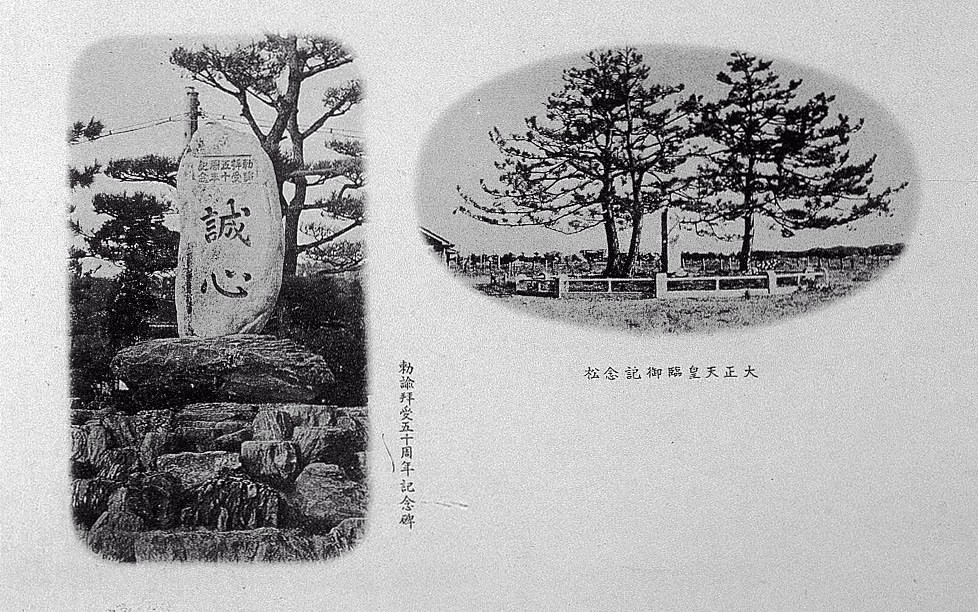 勅諭
拝受
五十
周年
記念
誠心
勅諭拝受五十周年記念碑
大正天皇臨御記念松